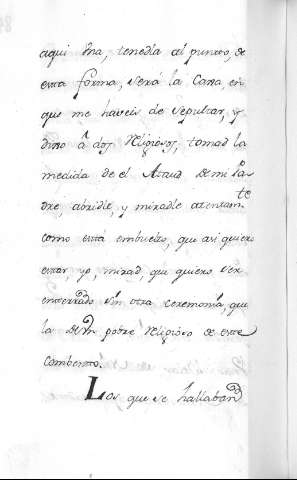 aqui una, tenedla al punto, de
esta forma, será la Caxa en
que me haveis de sepultar, y
dixo á dos Religiosos, tomad la
medida de el Ataud de mi Pa
dre, abridle, y miradle atentam.te
como está embuelto, que asi quiero
estar, yo, mirad, que quiero ser
enterrado sin otra ceremonia, que
la de Un pobre Religioso de este
Combento.
Los que se hallaban